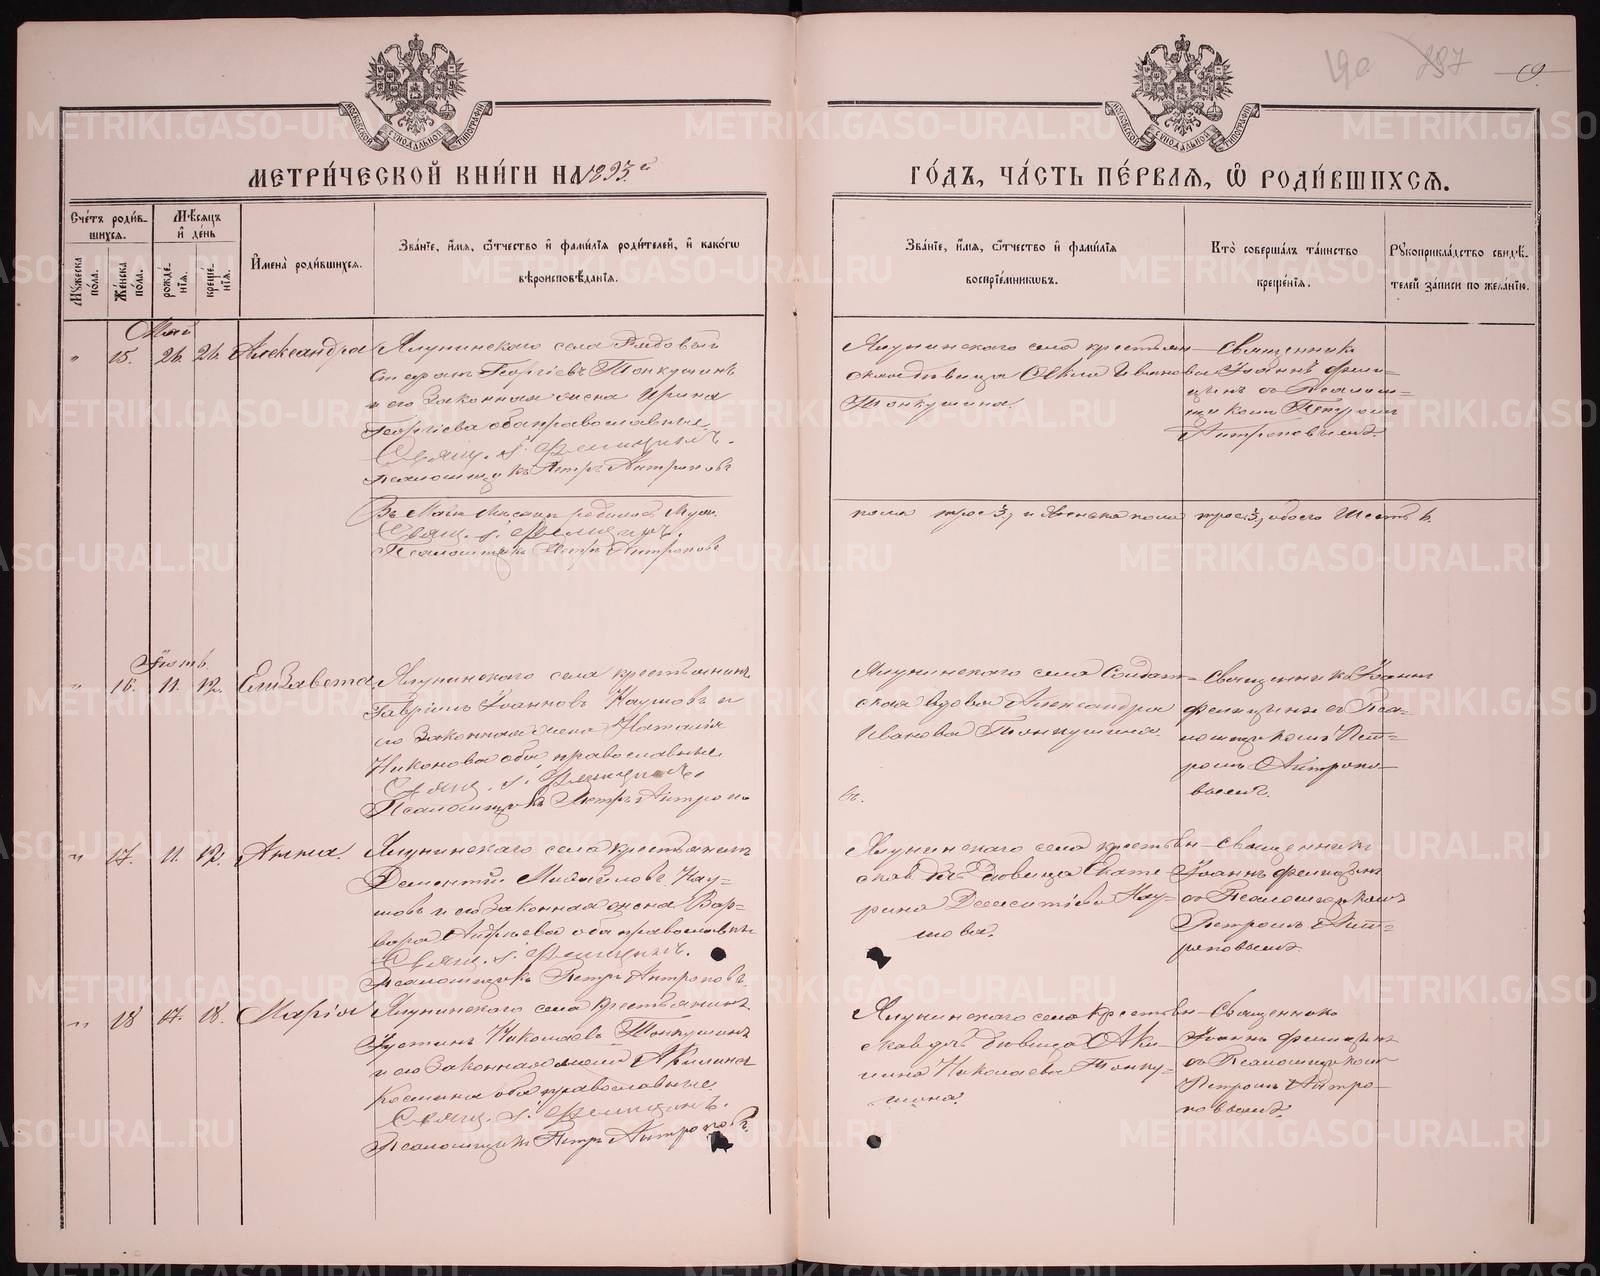 190 237 69
МОСКОВСКОЙ СѴНОДАЛЬНОЙ ТИПОГРАФІИ
МОСКОВСКОЙ СѴНОДАЛЬНОЙ ТИПОГРАФІИ
МЕТРИ́ЧЕСКОЙ КНИ́ГИ НА 1893й
ГО́ДЪ, ЧА́СТЬ ПЕ́РВАЯ, Ѽ РОДИ́ВШИХСЯ.
Сче́тъ роди́в-
шихся.
Мѣсяцъ
и де́нь
Мꙋ́жеска
по́ла.
Же́нска
по́ла.
рожде́-
нїя.
креще́-
нїя.
И҆мена̀ роди́вшихся.
Зва́нїе, и҆́мя, ѻ҆́тчество и҆ фами́лїя роди́телей, и҆ како́гѡ
вѣроисповѣ́данїя.
Зва́нїе, и҆́мя, ѻ҆́тчество и҆ фами́лїя
воспрїе́мниковъ.
Кто̀ соверша́лъ та́инство
креще́нїя.
Рꙋкоприкла́дство свидѣ́-
телей за́писи по жела́нїю.
Май
" 15. 26. 26. Александра
Ялунинскаго села Рядовый
Георгіевъ Тонкушинъ
и его Законная жена Ирина
Георгіева оба православные.
Свящ. І. Фелицинъ.
псаломщикъ Петръ Антроповъ
Ялунинскаго села крестьян-
ская дѣвица Ивановa
Тонкушина.
Священникъ
Іоаннъ Фели-
цинъ съ Псалом-
щикомъ Петромъ
Антроповымъ.
Въ Маѣ Мѣсяцѣ родилось Муж.
пола трое 3, и Женска пола трое 3, обоего Шесть 6.
Свящ. І. Фелицинъ.
Псаломщикъ Петръ Антроповъ
Іюнь.
" 16. 11. 12. Елизавета.
Ялунинскаго села крестьянинъ
Гавріилъ Іоанновъ Наумовъ и
его Законная жена Наталія
Никонова оба православные
Свящ. І. Фелицинъ.
Псаломщикъ Петръ Антропо
въ.
Ялунинскаго села Солдат-
ская вдова Александра
Иванова Тонкушина.
Священникъ Іоаннъ
Фелицинъ съ Пса-
ломщикомъ Пет-
ромъ Антропо-
вымъ.
" 17. 11. 12. Анна.
Ялунинскаго села крестьянинъ
Дементій Михайловъ Нау-
мовъ и его Законная жена Вар-
вара Андреева оба православные
Свящ. І. Фелицинъ.
Псаломщикъ Петръ Антроповъ.
Ялунинскаго села крестьян-
ская дѣвица Екате
рина Дементіева Нау-
мова.
Священникъ
Іоаннъ Фелицинъ
съ Псаломщикомъ
Петромъ Ант-
роповымъ
" 18 17. 18. Марія
Ялунинскаго села Крестьянинъ
Іустинъ Николаевъ Тонкушинъ
и его Законная жена Акилина
оба православные.
Свящ. І. Фелицинъ.
Псаломщикъ Петръ Антроповъ.
Ялунинскаго села Крестьян-
ская дѣвица Аки-
лина Николаева Тонку-
шина.
Священникъ
Іоаннъ Фелицинъ
съ Псаломщикомъ
Петромъ Антро-
повымъ.
METRIKI.GASO-URAL.RU